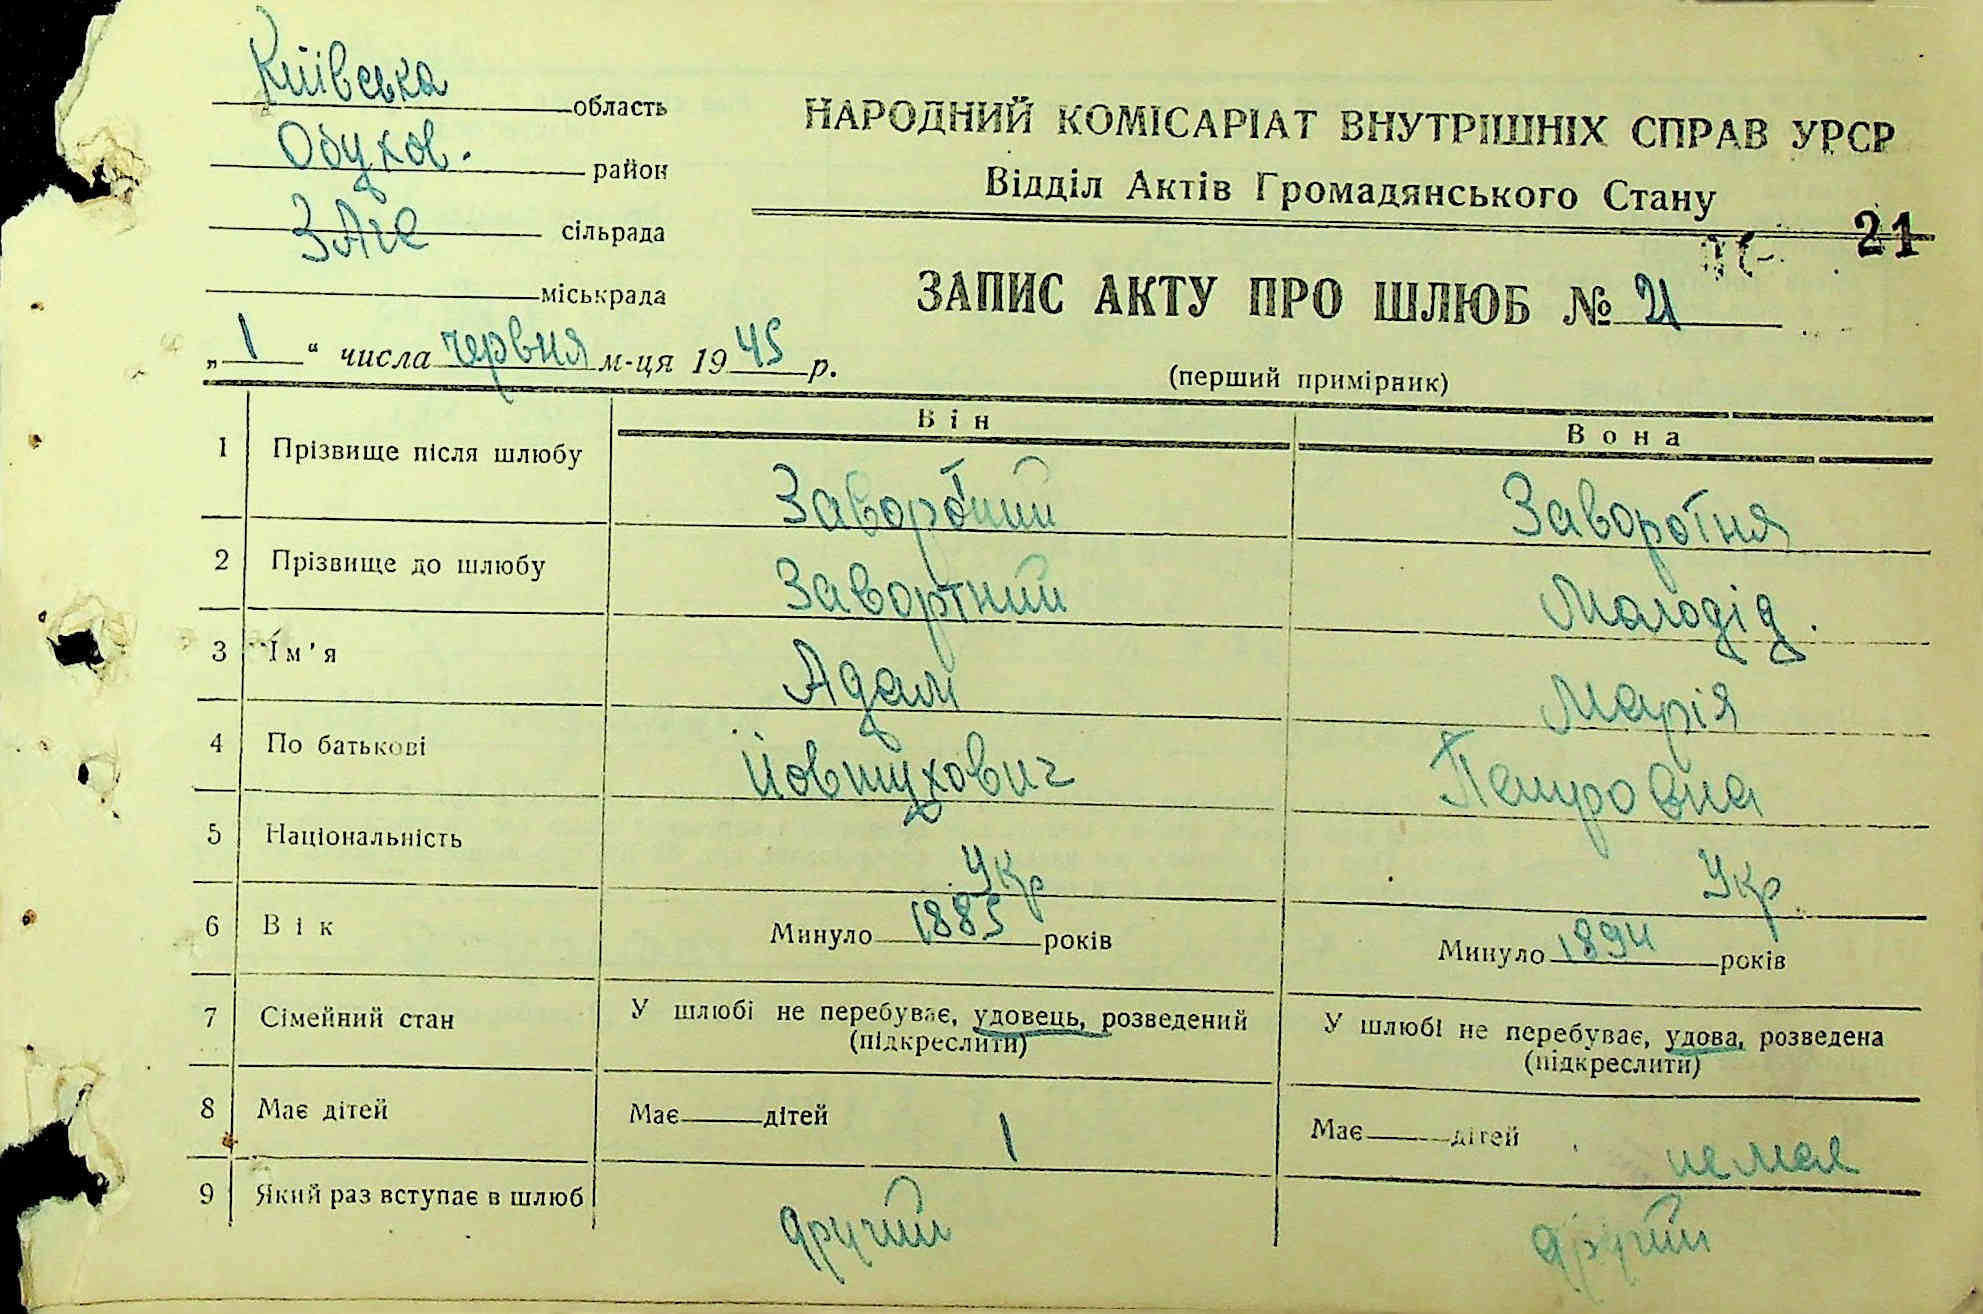 Київська область
Обухов. район
ЗАГС сільрада
міськрада
„ 1 “ числа червня м-ця 19 45 р.
НАРОДНИЙ КОМІСАРІАТ ВНУТРІШНІХ СПРАВ УРСР
Відділ Актів Громадянського Стану
21
ЗАПИС АКТУ ПРО ШЛЮБ № 21
(перший примірник)
Він Вона
1 Прізвище після шлюбу Заворотний Заворотня
2 Прізвище до шлюбу Завортний Молодід.
3 Їм'я Адам Марія
4 По батькові Йовтухович Петуровна
5 Національність Укр Укр
6 Вік Минуло 1885 років Минуло 1894 років
7 Сімейний стан У шлюбі не перебуває, удовець, розведений У шлюбі не перебуває, удова, розведена
(підкреслити) (підкреслити)
8 Має дітей Має дітей 1 Має дітей не має
9 Який раз вступає в шлюб другий другий